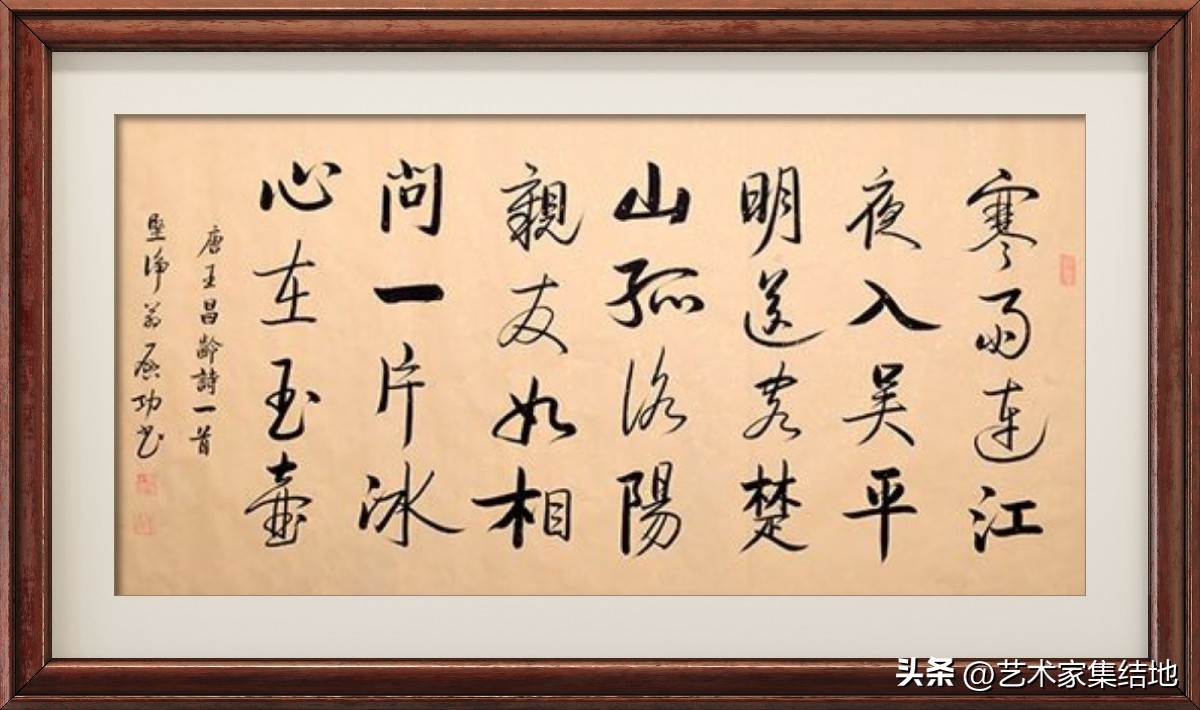 寒雨連江
夜入吳平
明送客楚
山孤洛陽
親友如相
問一片冰
心在玉壺
唐王昌齡詩一首
堅淨翁啟功書
头条 @艺术家集结地